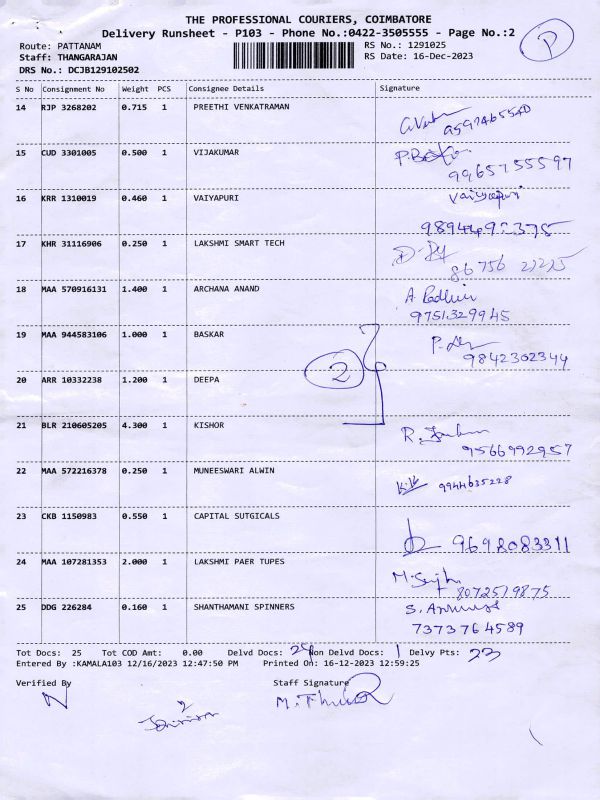 THE PROFESSIONAL COURIERS, COIMBATORE
Delivery Runsheet - P103 - Phone No.:0422-3505555 - Page No.:2
P
Route: PATTANAM
RS No.: 1291025
Staff: THANGARAJAN
RS Date: 16-Dec-2023
DRS No.: DCJB129102502
S No Consignment No Weight PCS Consignee Details Signature
14 RJP 3268202 0.715 1 PREETHI VENKATRAMAN
15 CUD 3301005 0.500 1 VIJAKUMAR
9965755597
16 KRR 1310019 0.460 1 VAIYAPURI Vaiyapuri
17 KHR 31116906 0.250 1 LAKSHMI SMART TECH
86756 22225
18 MAA 570916131 1.400 1 ARCHANA ANAND
9751329945
19 MAA 944583106 1.000 1 BASKAR
9842302344
2
20 ARR 10332238 1.200 1 DEEPA
21 BLR 210605205 4.300 1 KISHOR
9566992957
22 MAA 572216378 0.250 1 MUNEESWARI ALWIN
9944635228
23 CKB 1150983 0.550 1 CAPITAL SUTGICALS
9698083311
24 MAA 107281353 2.000 1 LAKSHMI PAER TUPES
8072519875
25 DDG 226284 0.160 1 SHANTHAMANI SPINNERS
7373764589
Tot Docs: 25 Tot COD Amt: 0.00 Delvd Docs: 24 Non Delvd Docs: 1 Delvy Pts: 23
Entered By :KAMALA103 12/16/2023 12:47:50 PM Printed On: 16-12-2023 12:59:25
Verified By Staff Signature